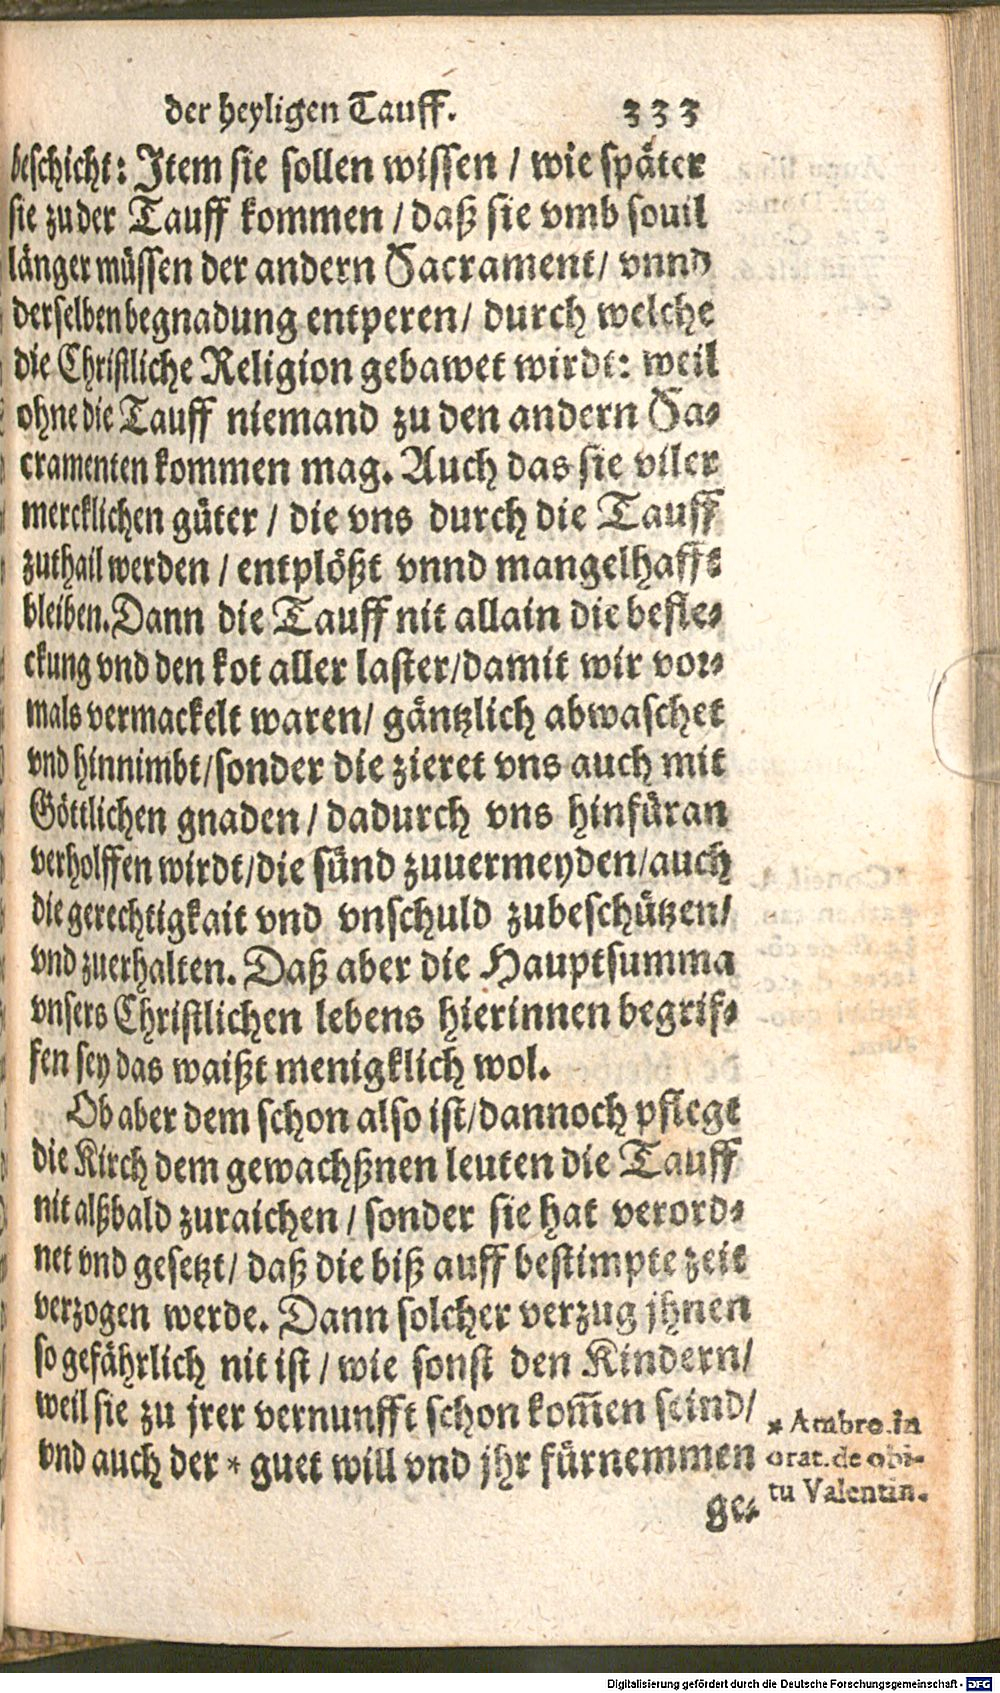 der heyligen Tauff. 333
beschicht: Item sie sollen wissen / wie später
sie zu der Tauff kommen / daß sie vmb souil
länger müssen der andern Sacrament / vnnd
derselben begnadung entperen / durch welche
die Christliche Religion gebawet wirdt: weil
ohne die Tauff niemand zu den andern Sa-
cramenten kommen mag. Auch das sie viler
mercklichen güter / die vns durch die Tauff
zuthail werden / entplößt vnnd mangelhafft
bleiben. Dann die Tauff nit allain die befle-
ckung vnd den kot aller laster / damit wir vor-
mals vermackelt waren / gäntzlich abwaschet
vnd hinnimbt / sonder die zieret vns auch mit
Göttlichen gnaden / dadurch vns hinfüran
verholffen wirdt / die sünd zuuermeyden / auch
die gerechtigkait vnd vnschuld zubeschützen /
vnd zuerhalten. Daß aber die Hauptsumma
vnsers Christlichen lebens hierinnen begrif-
fen sey das waißt menigklich wol.
Ob aber dem schon also ist / dannoch pflegt
die Kirch dem gewachßnen leuten die Tauff
nit alßbald zuraichen / sonder sie hat verord-
net vnd gesetzt / daß die biß auff bestimpte zeit
verzogen werde. Dann solcher verzug jhnen
so gefährlich nit ist / wie sonst den Kindern /
weil sie zu jrer vernunfft schon kom̄en seind /
vnd auch der * guet will vnd jhr fürnemmen
ge-
* Ambro. in
orat. de obi-
tu Valentin.
Digitalisierung gefördert durch die Deutsche Forschungsgemeinschaft - DFG